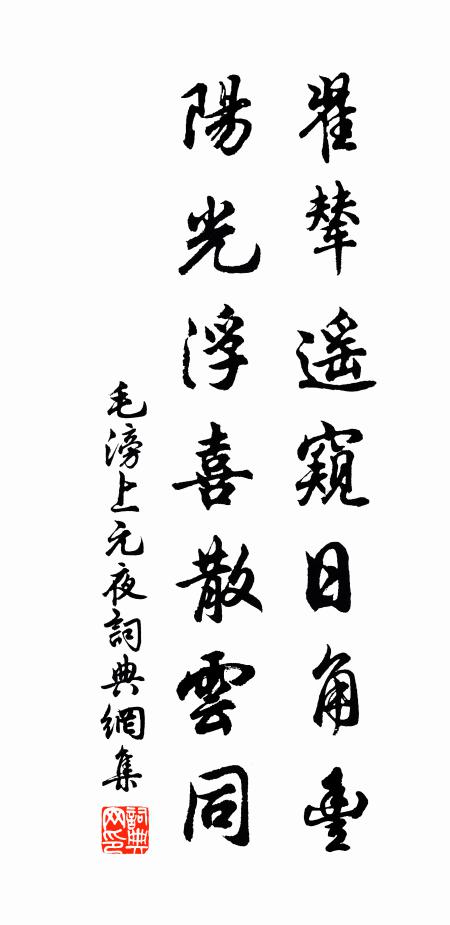 翟輦遥窺日角豐
陽光浮喜散雲同
毛滂上元夜詞典網集
詞典网印